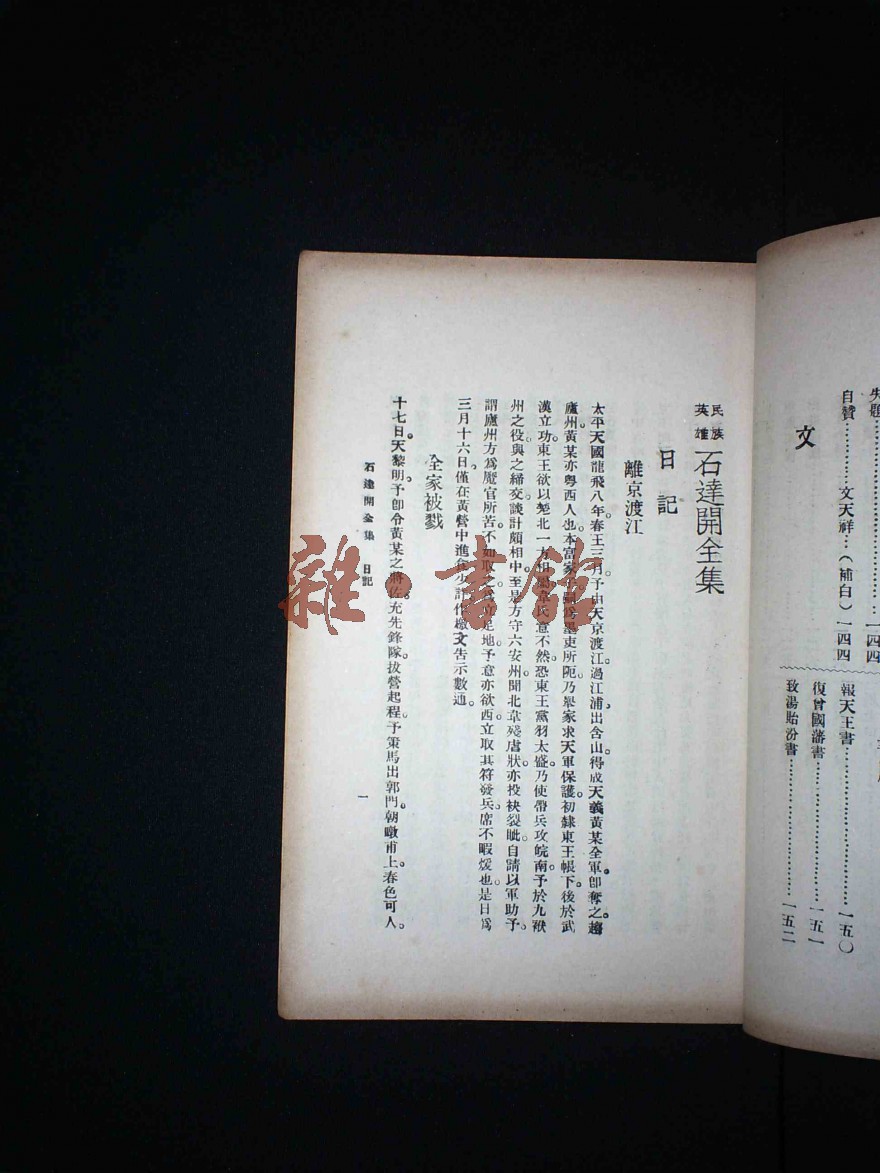 失題………………一四四
自贊…………文天祥…(補白)一四四
文
報天王書………………一五〇
復曾國藩書………………一五一
致湯貽汾書………………一五二
民族英雄 石達開全集
日記
離京渡江
太平天國龍飛八年。春王三月。予由天京渡江。過江浦。出含山。得成天義黃某全軍。卽奪之趨
廬州。黃某亦粵西人也。本富家子。爲墨吏所陁。乃舉家求天軍保護。初隸東王帳下。後於武
漢立功。東王欲以楚北一方相屬。韋氏意不然。恐東王黨羽太盛。乃使帶兵攻皖南。予於九洑
州之役。與之締交。談計頗相中。至是方守六安州。聞北韋殘虐狀。亦投袂裂眦。自請以軍助予。
謂廬州方爲魔官所苦。不如取之爲立足地。予意亦欲西。立取其符發兵。席不暇煖也。是日爲
三月十六日。僅在黃營中進食少許。作檄文告示數通。
全家被戮
十七日。天黎明。予卽令黃某之將佐充先鋒隊。拔營起程。予策馬出郭門。朝暾甫上。春色可人。
石達開全集 日記
一
雜·書館